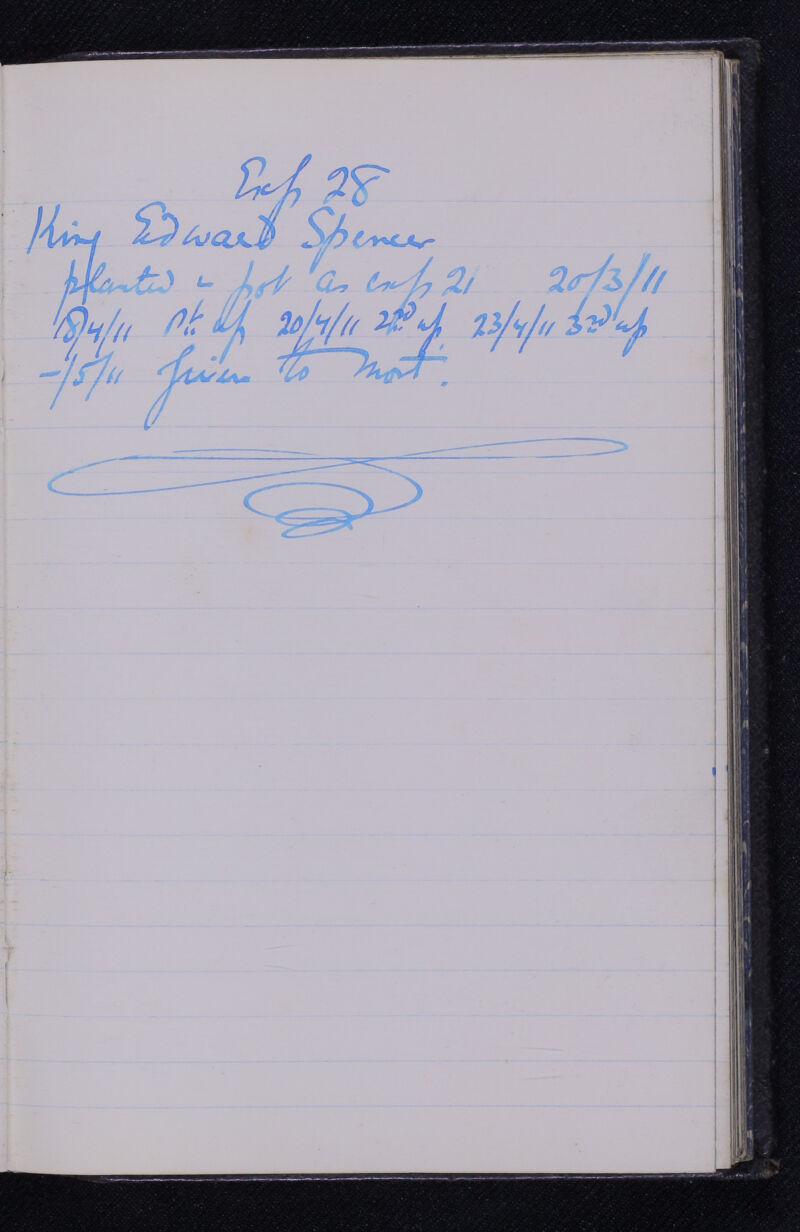 Exp 28
King Edward Spencer
planted in pot as exp 21 20/3/11
18/4/11 1st up 20/4/11 2nd up 23/4/11 3rd up
-/5/11 Given to Mort.